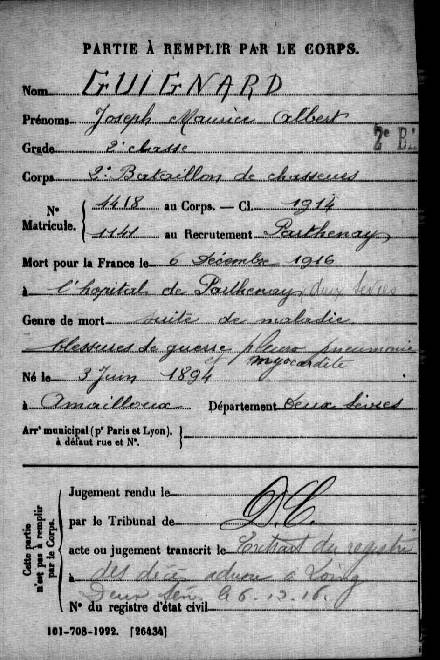 PARTIE À REMPLIR PAR LE CORPS.
Nom GUIGNARD
Prénoms Joseph Maurice Albert
Grade 2e classe
2e B
Corps 2e Bataillon de chasseurs
N° Matricule. { 1418 au Corps. — Cl. 1914
1141 au Recrutement Parthenay
Mort pour la France le 6 Décembre 1916
à l'hopital de Parthenay, deux sèvres
Genre de mort suite de maladie
blessures de guerre pleuro pneumonie
et myocardite
Né le 3 Juin 1894
à Amailloux Département deux sèvres
Arrt municipal (pr Paris et Lyon), à défaut rue et N°. }
Cette partie n'est pas à remplir par le Corps. {
Jugement rendu le
par le Tribunal de D.C.
acte ou jugement transcrit le Extrait du registre
à des décès
Deux Sèv. le 6.12.16.
N° du registre d'état civil
101-708-1922. [26434]